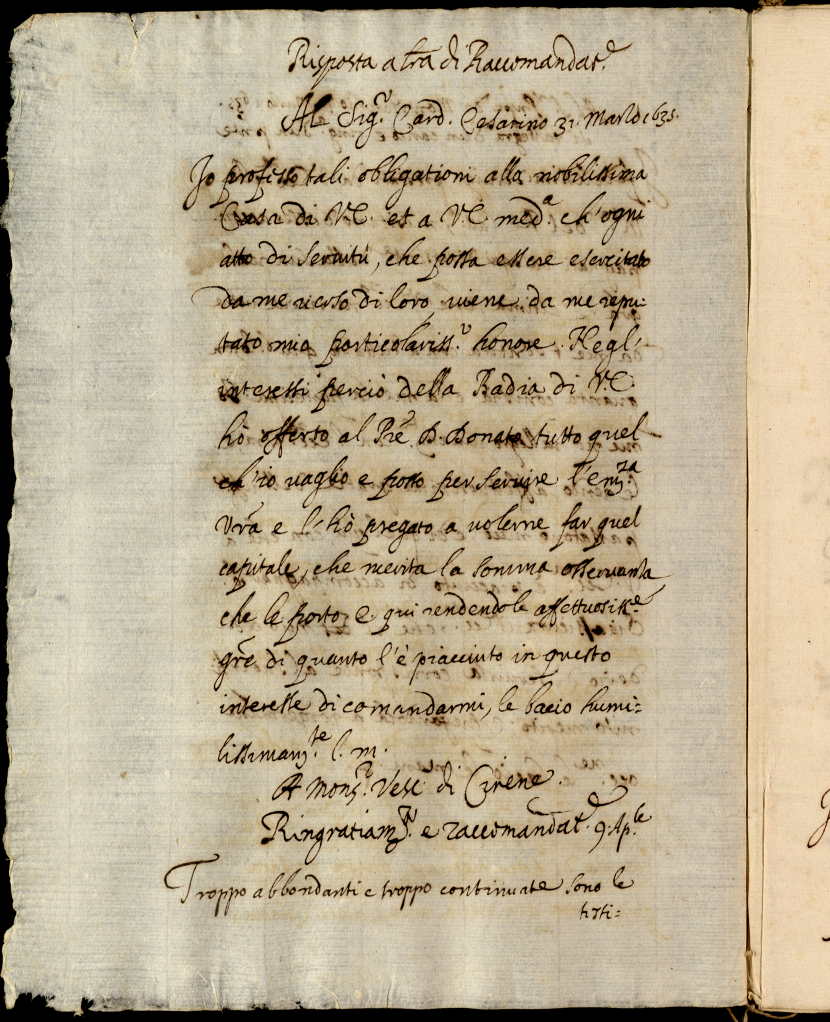 Risposta a lr̃a di Raccomandat.e
Al Sig.r Card. Cesarino 31. Marzo 1635.
Io professo tali obligationi alla nobilissima
Casa di V.E. et a V.E. med.a ch'ogni
atto di servitù, che possa essere esercitato
da me verso di loro, viene da me repu-
tato mio particolariss.o honore. Negl'
interessi perciò della Badia di V.E.
hò offerto al Prẽ D. Donato tutto quel
ch'io vaglio e posso per servire l'Em.za
Vrã e l'hò pregato a volerne far quel
capitale, che merita la somma osservanza
che le porto, e qui rendendole affettuosiss.e
grẽ di quanto l'è piacciuto in questo
interesse di comandarmi, le bacio humi-
lissimam.te l. m.
A Mons.r Vesc.o di Cirene.
Ringratiam.to e raccomandat.e 9. Ap.le
Troppo abbondanti e troppo continuate sono le
testi=